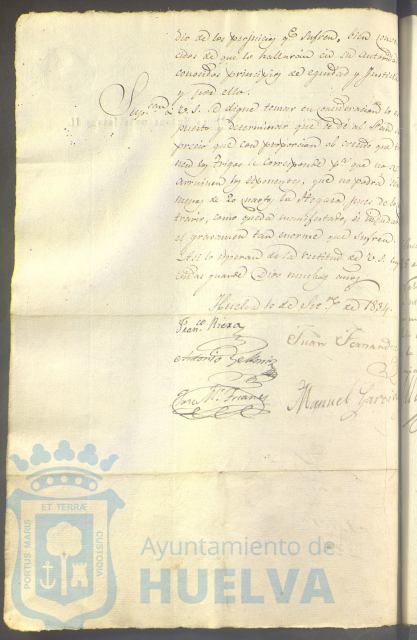 dio de los perjuicios qe sufren, bien conven
cidos de que lo hallarán en su autoridad
conocidos principios de equidad y Justicia
y por ello.
Supcan a V. S. se digne tomar en consideracion lo es
puesto y determinar que se dé al Pan el
precio que con proporcion al costo que tie
nen los trigos le corresponde pa que no se
arruinen los esponentes, que no podrá ser
menos de 20 cuartos la Hogaza, pues de lo con
trario, como queda manifestado, si
el gravamen tan enorme que sufren
Asi lo esperan de la rectitud de V. S. cuya
vida guarde Dios muchos años
Huelva 10 de Sete de 1834.
Franco Rioxa
Juan Fernandez
Antonio
Jose Ma Trianes
Manuel Garcia
PORTUS MARIS ET TERRÆ CUSTODIA
Ayuntamiento de
HUELVA